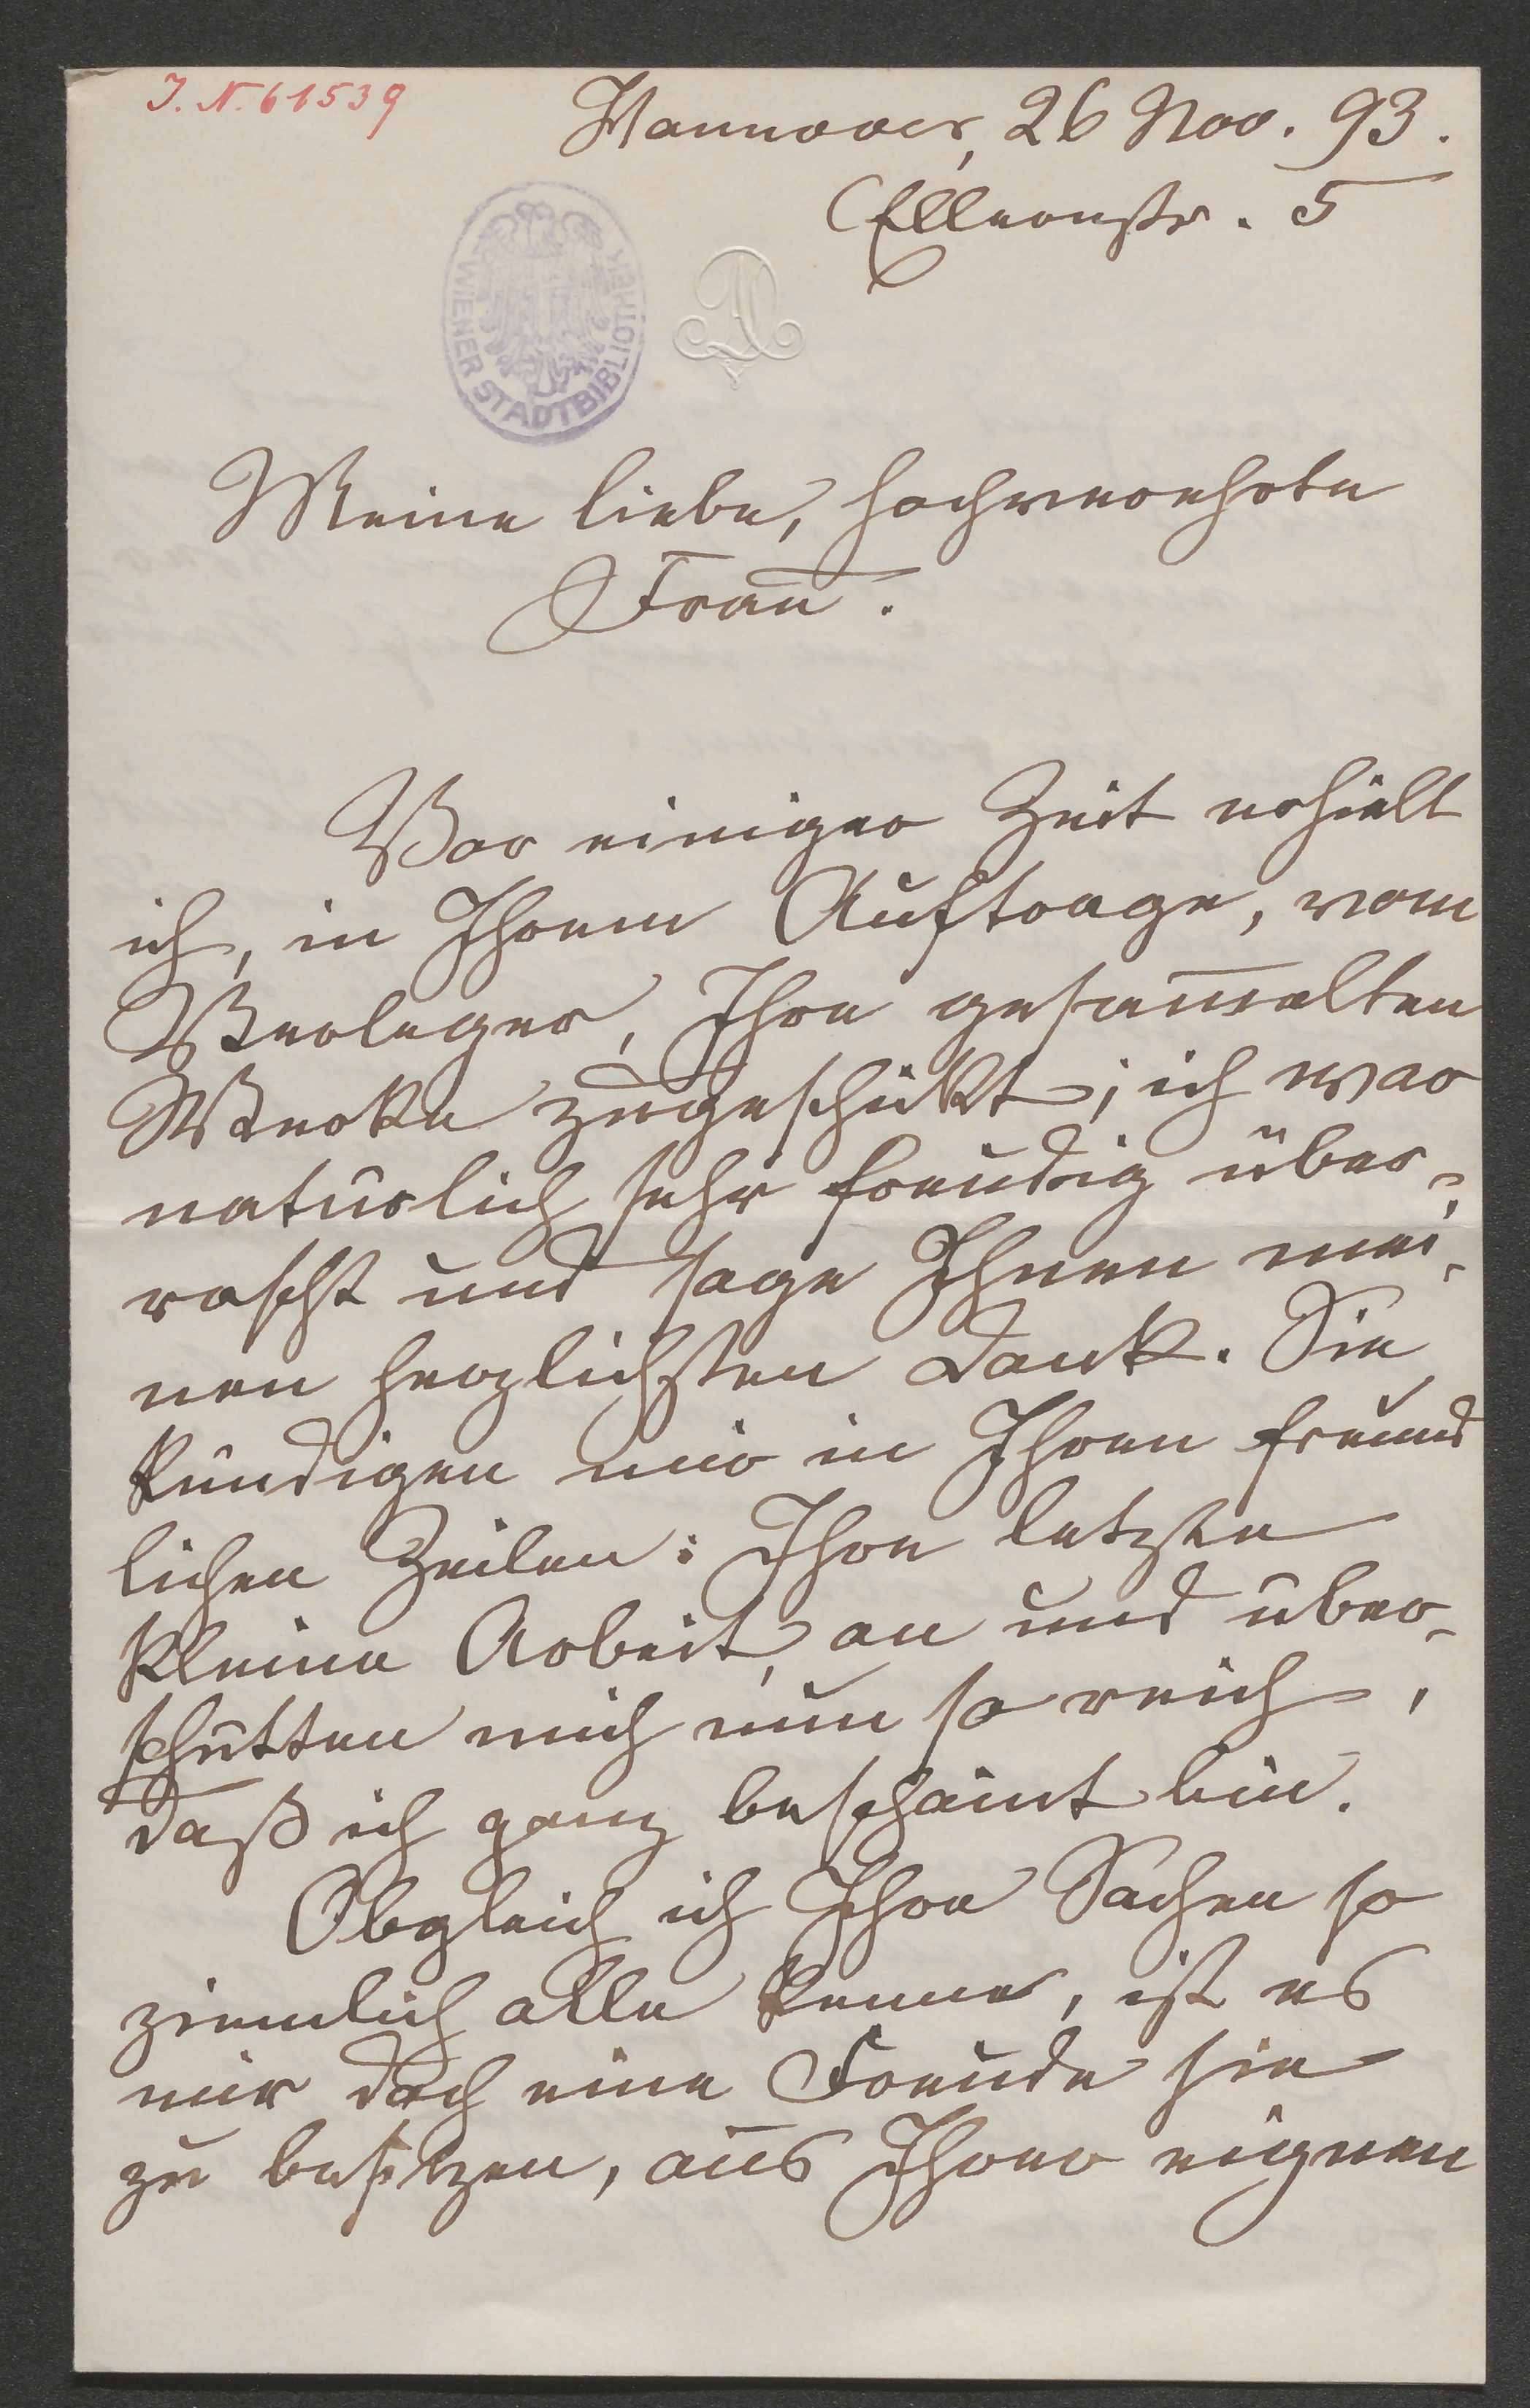 J. N. 61539
Hannover, 26 Nov. 93.
Ellernstr. 5
WIENER STADTBIBLIOTHEK
Meine liebe, hochverehrte
Frau.
Vor einiger Zeit erhielt
ich, in Ihrem Auftrage, vom
Verleger, Ihre gesam̅elten
Werke zugeschickt; ich war
natürlich sehr freudig über-
rascht und sage Ihnen mei-
nen herzlichsten Dank. Sie
kündigen mir in Ihren freund
lichen Zeilen: Ihre letzte
kleine Arbeit, an und über-
schütten mich nun so reich,
daß ich ganz beschämt bin.
Obgleich ich Ihre Sachen so
ziemlich alle kenne, ist es
mir doch eine Freude sie
zu besitzen, aus Ihrer eignen